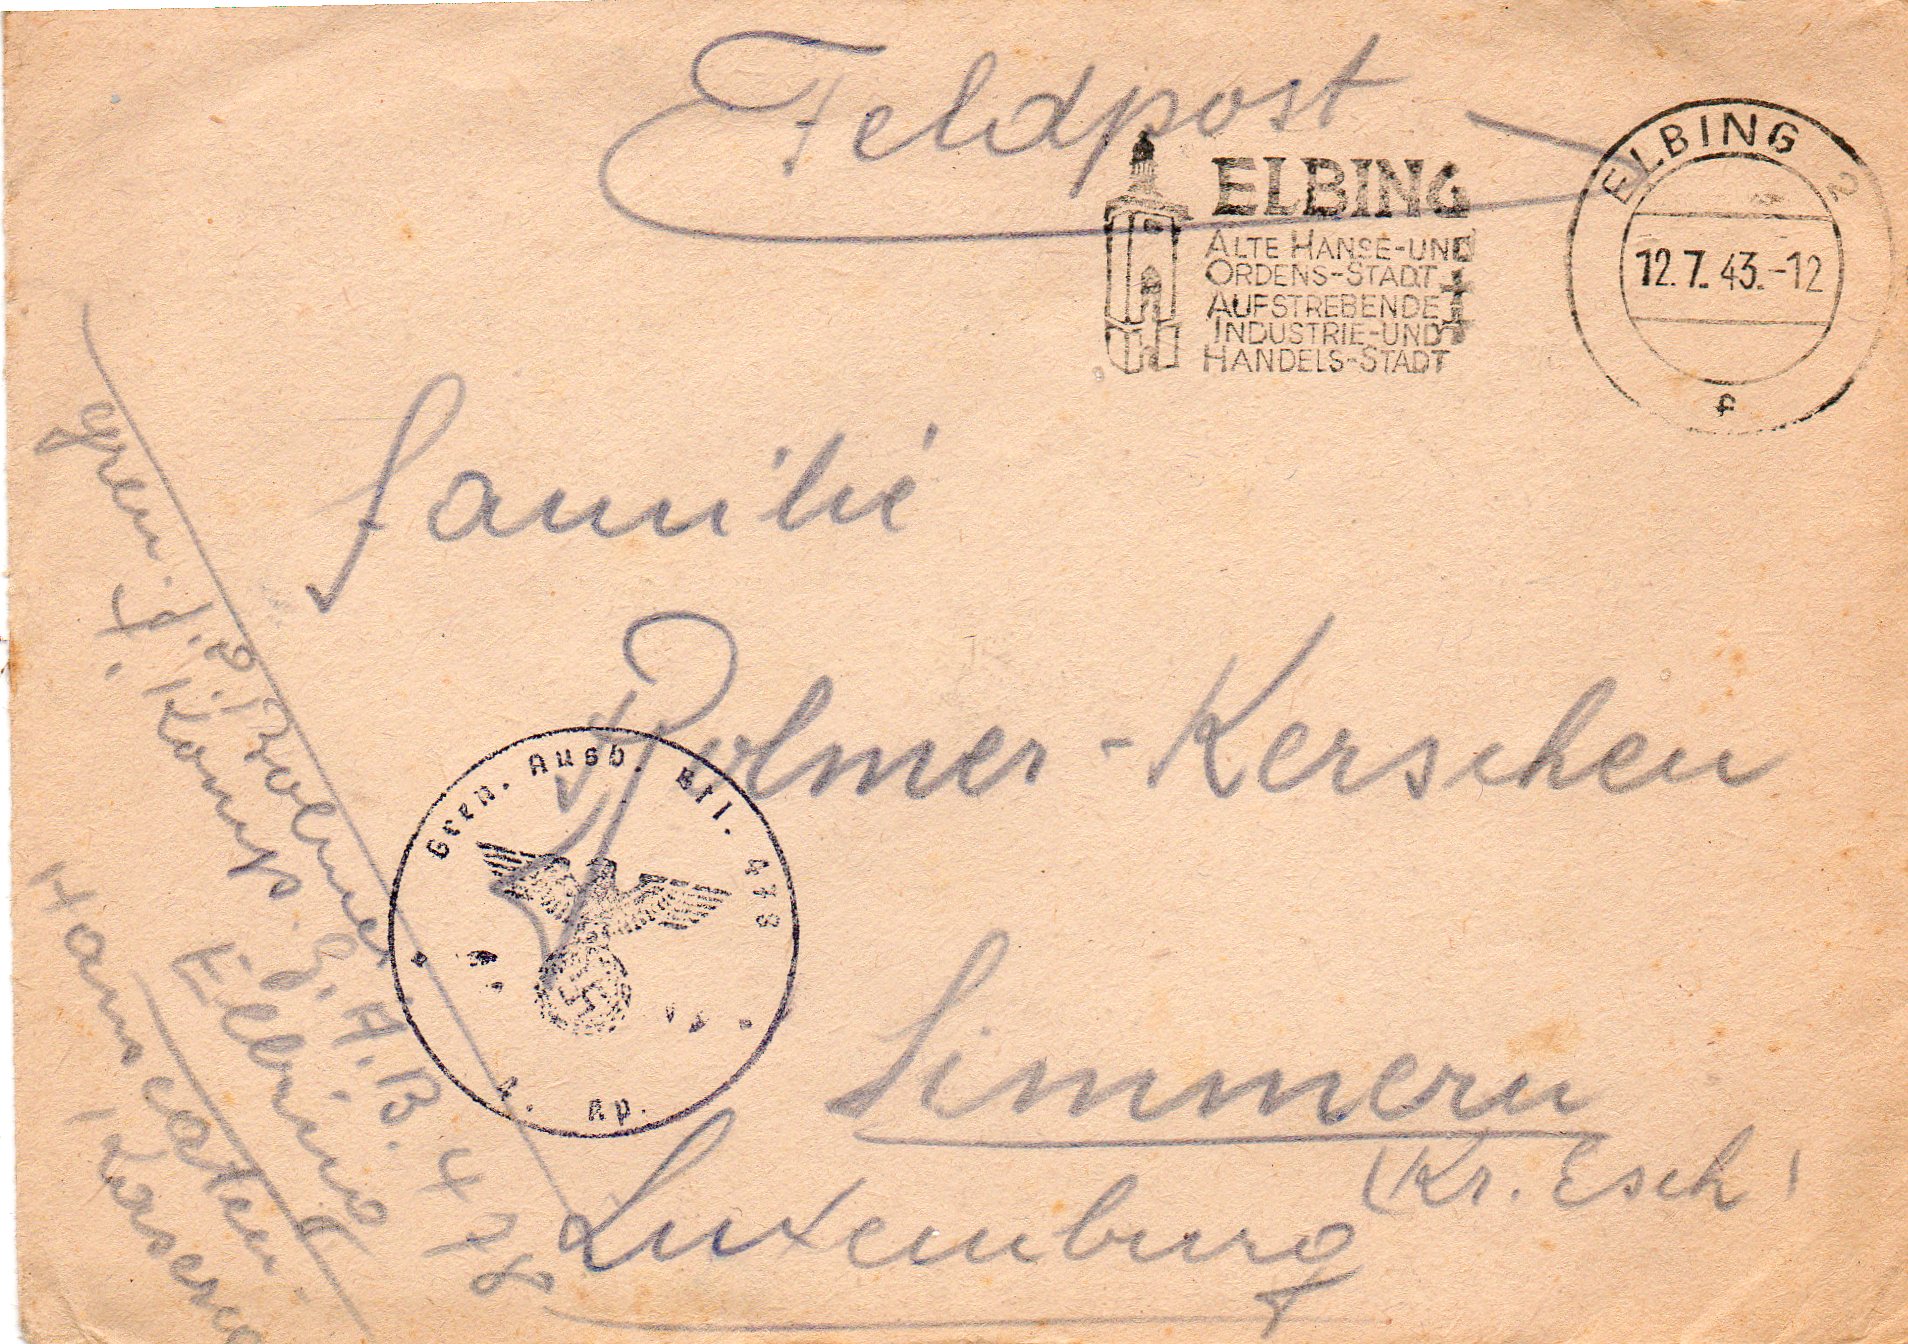 Feldpost
ELBING
ALTE HANSE-UND
ORDENS-STADT
AUFSTREBENDE
INDUSTRIE-UND
HANDELS-STADT
ELBING 2
12.7.43.-12
f
Familie
Polmer-Kerschen
Simmern
(Kr. Esch)
Luxemburg
Gren. Ausb. Btl. 478
4. Kp.
Gren. J. P. Bolmer
4. Komp. G. A. B. 478
Elbing
Hanseaten
Kaserne